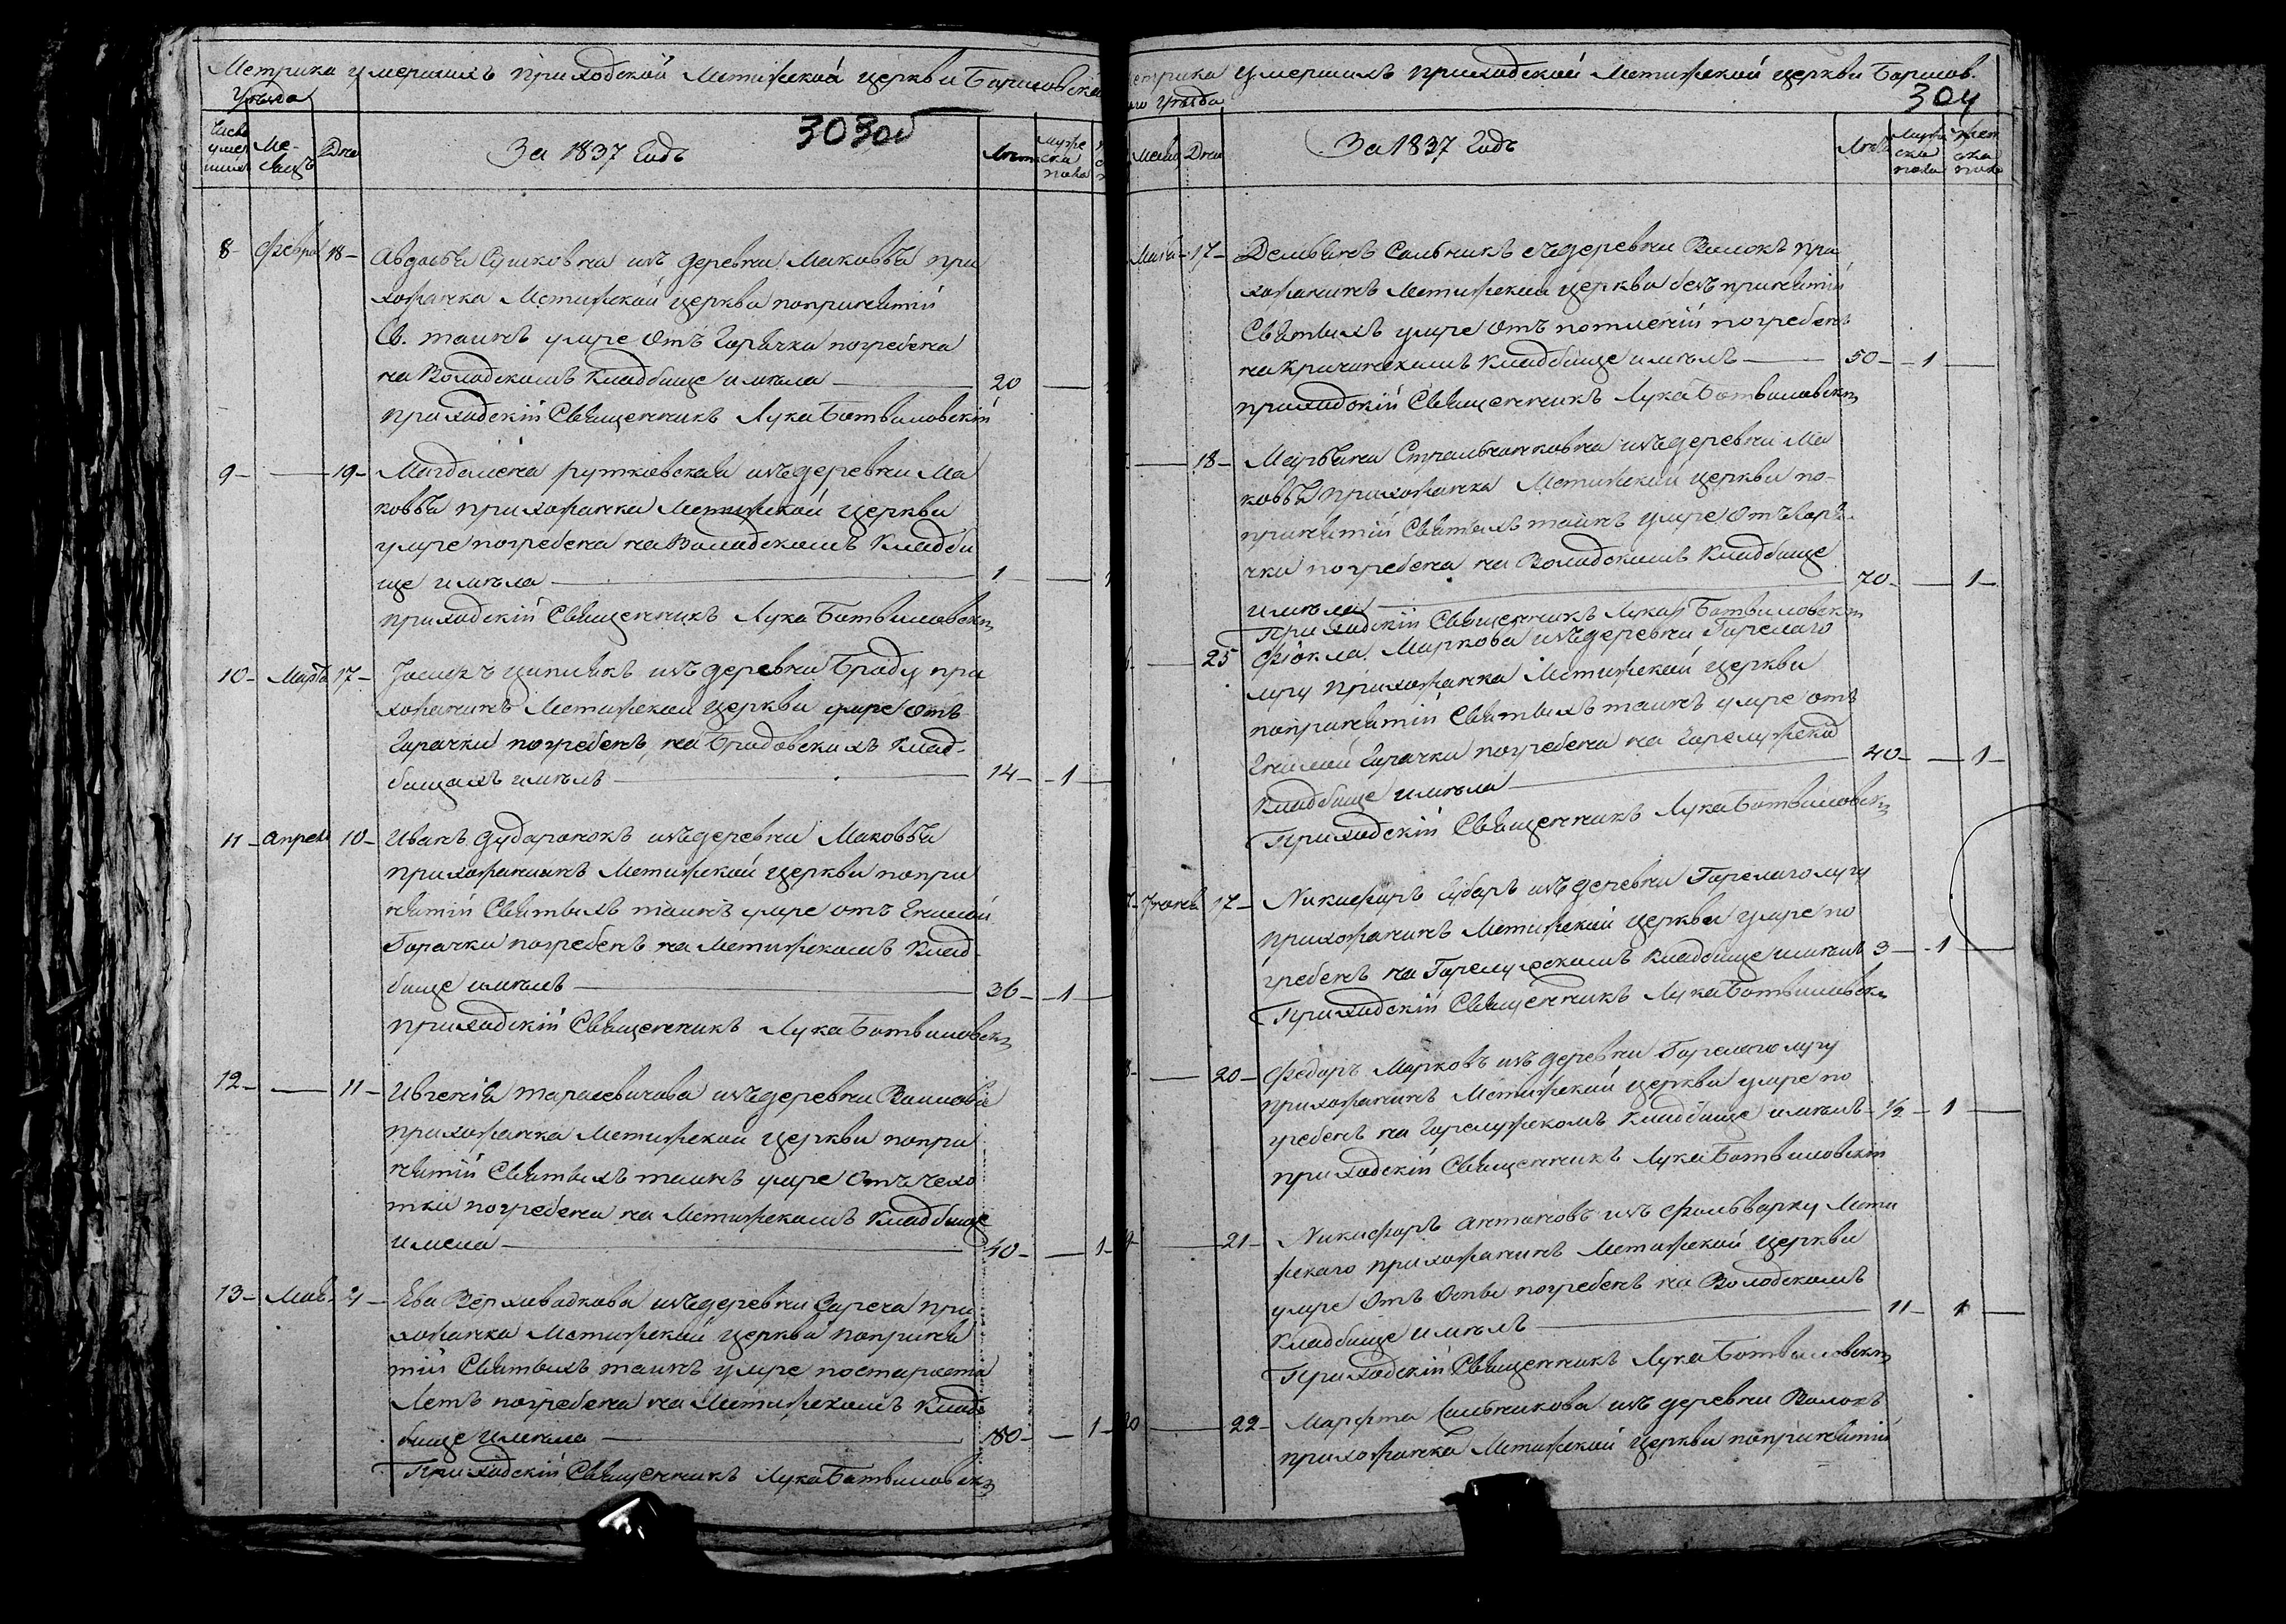 Метрика умершихъ приходской Метижской церкви Борисовска
Уѣзда
303об
Число умер шихъ
Ме- сяцъ
Дни
За 1837 Годъ
Лѣт
муже ска пола
8 Февра 18 Авдотья Сушковна изъ деревни Маковья при
хожанка Метижской церкви попринятій
Св. таинъ умре отъ Горячки погребена
на Володскомъ Кладбище имѣла 20
приходскій Священникъ Лука Ботвиловскій
9 19 Магдалена рутковская изъ деревни Ма
ковья прихожанка Метижской церкви
умре погребена на Володскомъ Кладби
ще имѣла 1
приходскій Священникъ Лука Ботвиловски
10 Мартъ 17 ципликъ изъ деревни Броду при
хожанинъ Метижской церкви умре отъ
Горачки погребенъ на Бродовскихъ Клад-
бищахъ имѣлъ 14 1
11 апрель 10 Иванъ дударонокъ изъ деревни Маковья
прихожанинъ Метижской церкви попри
нятій Святыхъ таинъ умре отъ Гнилой
Горачки погребенъ на Метижскомъ Клад-
бище имѣлъ 36 1
приходскій Священникъ Лука Ботвиловски
12 11 Ивгенія тарасевичова изъ деревни
прихожанка Метижской церкви попри
нятій Святыхъ таинъ умре отъ чехо
тки погребена на Метижскомъ Кладбище
имела 40 1
13 Маи Ева изъ деревни Зареча при
хожанка Метижской церкви поприня
тій Святыхъ таинъ умре постароста
Летъ погребена на Метижскомъ Клад
бище имѣла 80 1
Приходскій Священникъ Лука Ботвиловски
етрика умершихъ приходской Метижской церкви Борисов.
го Уѣзда
304
Месяц
Дни
За 1837 Годъ
Лѣтъ
муже ска пола
жен ска пола
Маиа 17 Демьянъ Сальникъ съ деревни Волокъ при
хожанинъ Метижской церкви безъ принятій
Святыхъ умре отъ потленій погребенъ
на Кричинскомъ Кладбище имѣлъ 50 1
приходскій Священникъ Лука Ботвиловски
18 Марьяна изъ деревни Ма
ковья прихожанка Метижской церкви по-
принятій Святыхъ таинъ умре отъ Горя-
чки погребена на Володскомъ Кладбище
имѣла 70 1
приходскій Священникъ Лука Ботвиловски
25 Фіокла Маркова изъ деревни Горелаго
лугу прихожанка Метижской церкви
попринятій Святыхъ таинъ умре отъ
Гнилой Горачки погребена на Горелужско
Кладбище имѣла 40 1
Приходскій Священникъ Лука Ботвиловски
17 Никифоръ изъ деревни Горелаголугу
прихожанинъ Метижской церкви умре по
гребенъ на Горелужскомъ Кладбище имѣлъ 3 1
Приходскій Священникъ Лука Ботвиловски
20 Федоръ Марковъ изъ деревни Горелаголугу
прихожанинъ Метижской церкви умре по
гребенъ на Горелужскомъ Кладбище имѣлъ 1/2 1
приходскій Священникъ Лука Ботвиловскій
21 Никифоръ антоновъ изъ Фольварку Мети
жскаго прихожанинъ Метижской церкви
умре отъ Оспы погребенъ на Володскомъ
Кладбище имѣлъ 11 1
Приходскій Священникъ Лука Ботвиловски
20 22 Марфта Сальникова изъ деревни Волокъ
прихожанка Метижской церкви попринятій